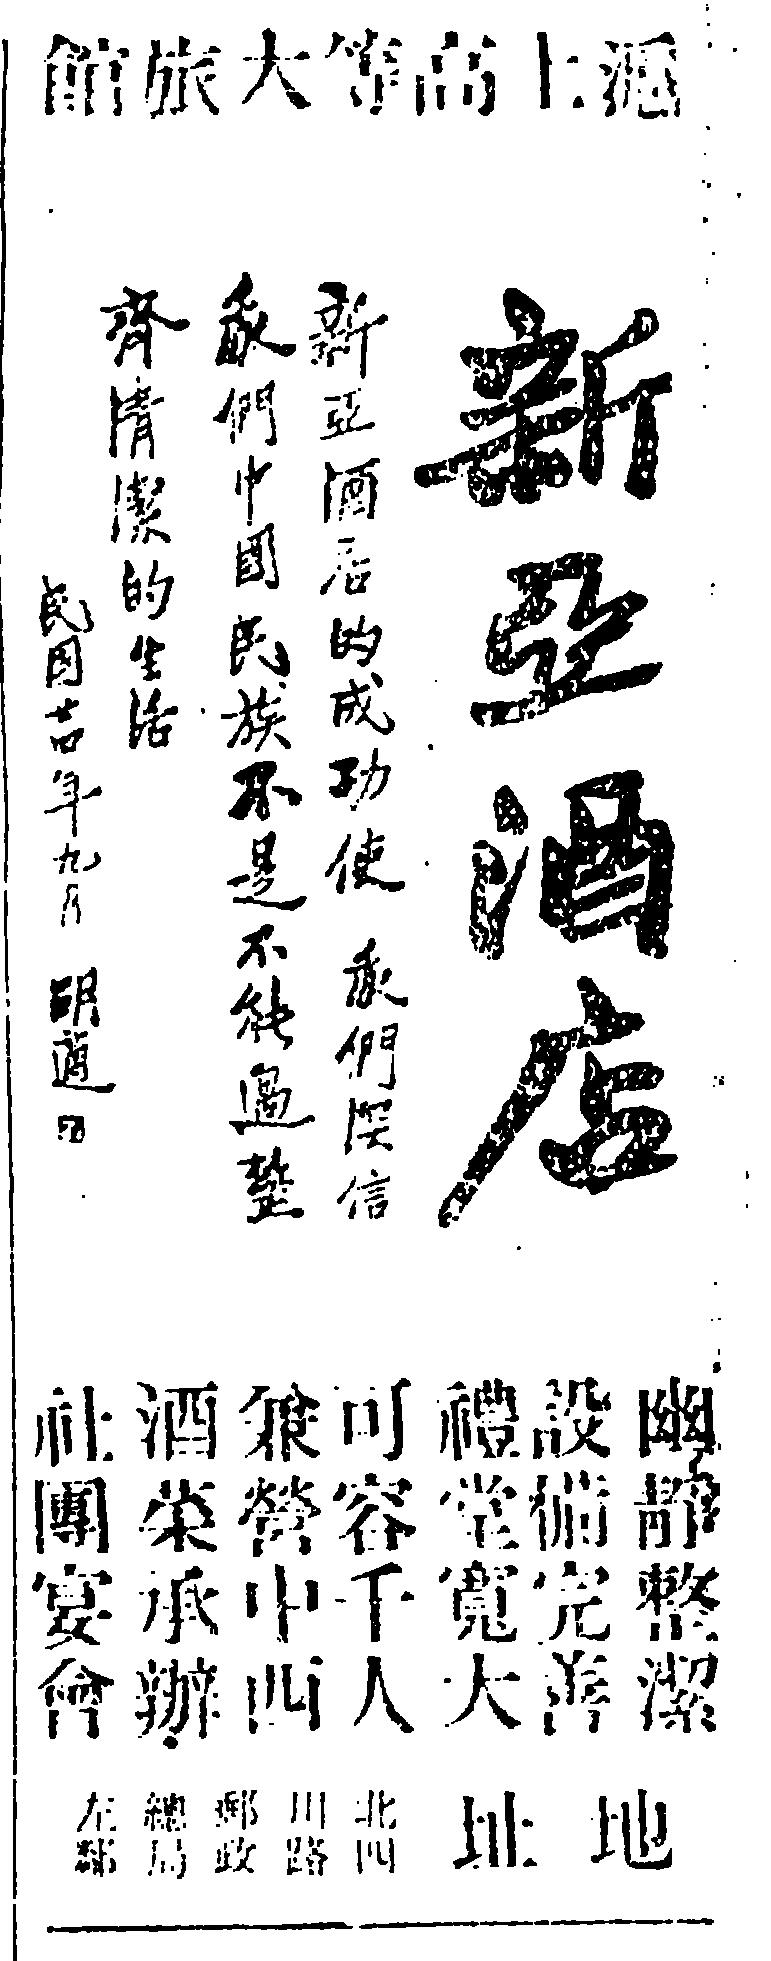 滬上高等大旅館
新亞酒店
新亞酒店的成功使我們深信
我們中國民族不是不能過整
齊清潔的生活
民國廿四年九月 胡適
幽靜整潔
設備完善
禮堂寬大
可容千人
兼營中西
酒菜承辦
社團宴會
地址
北四川路郵政總局左鄰